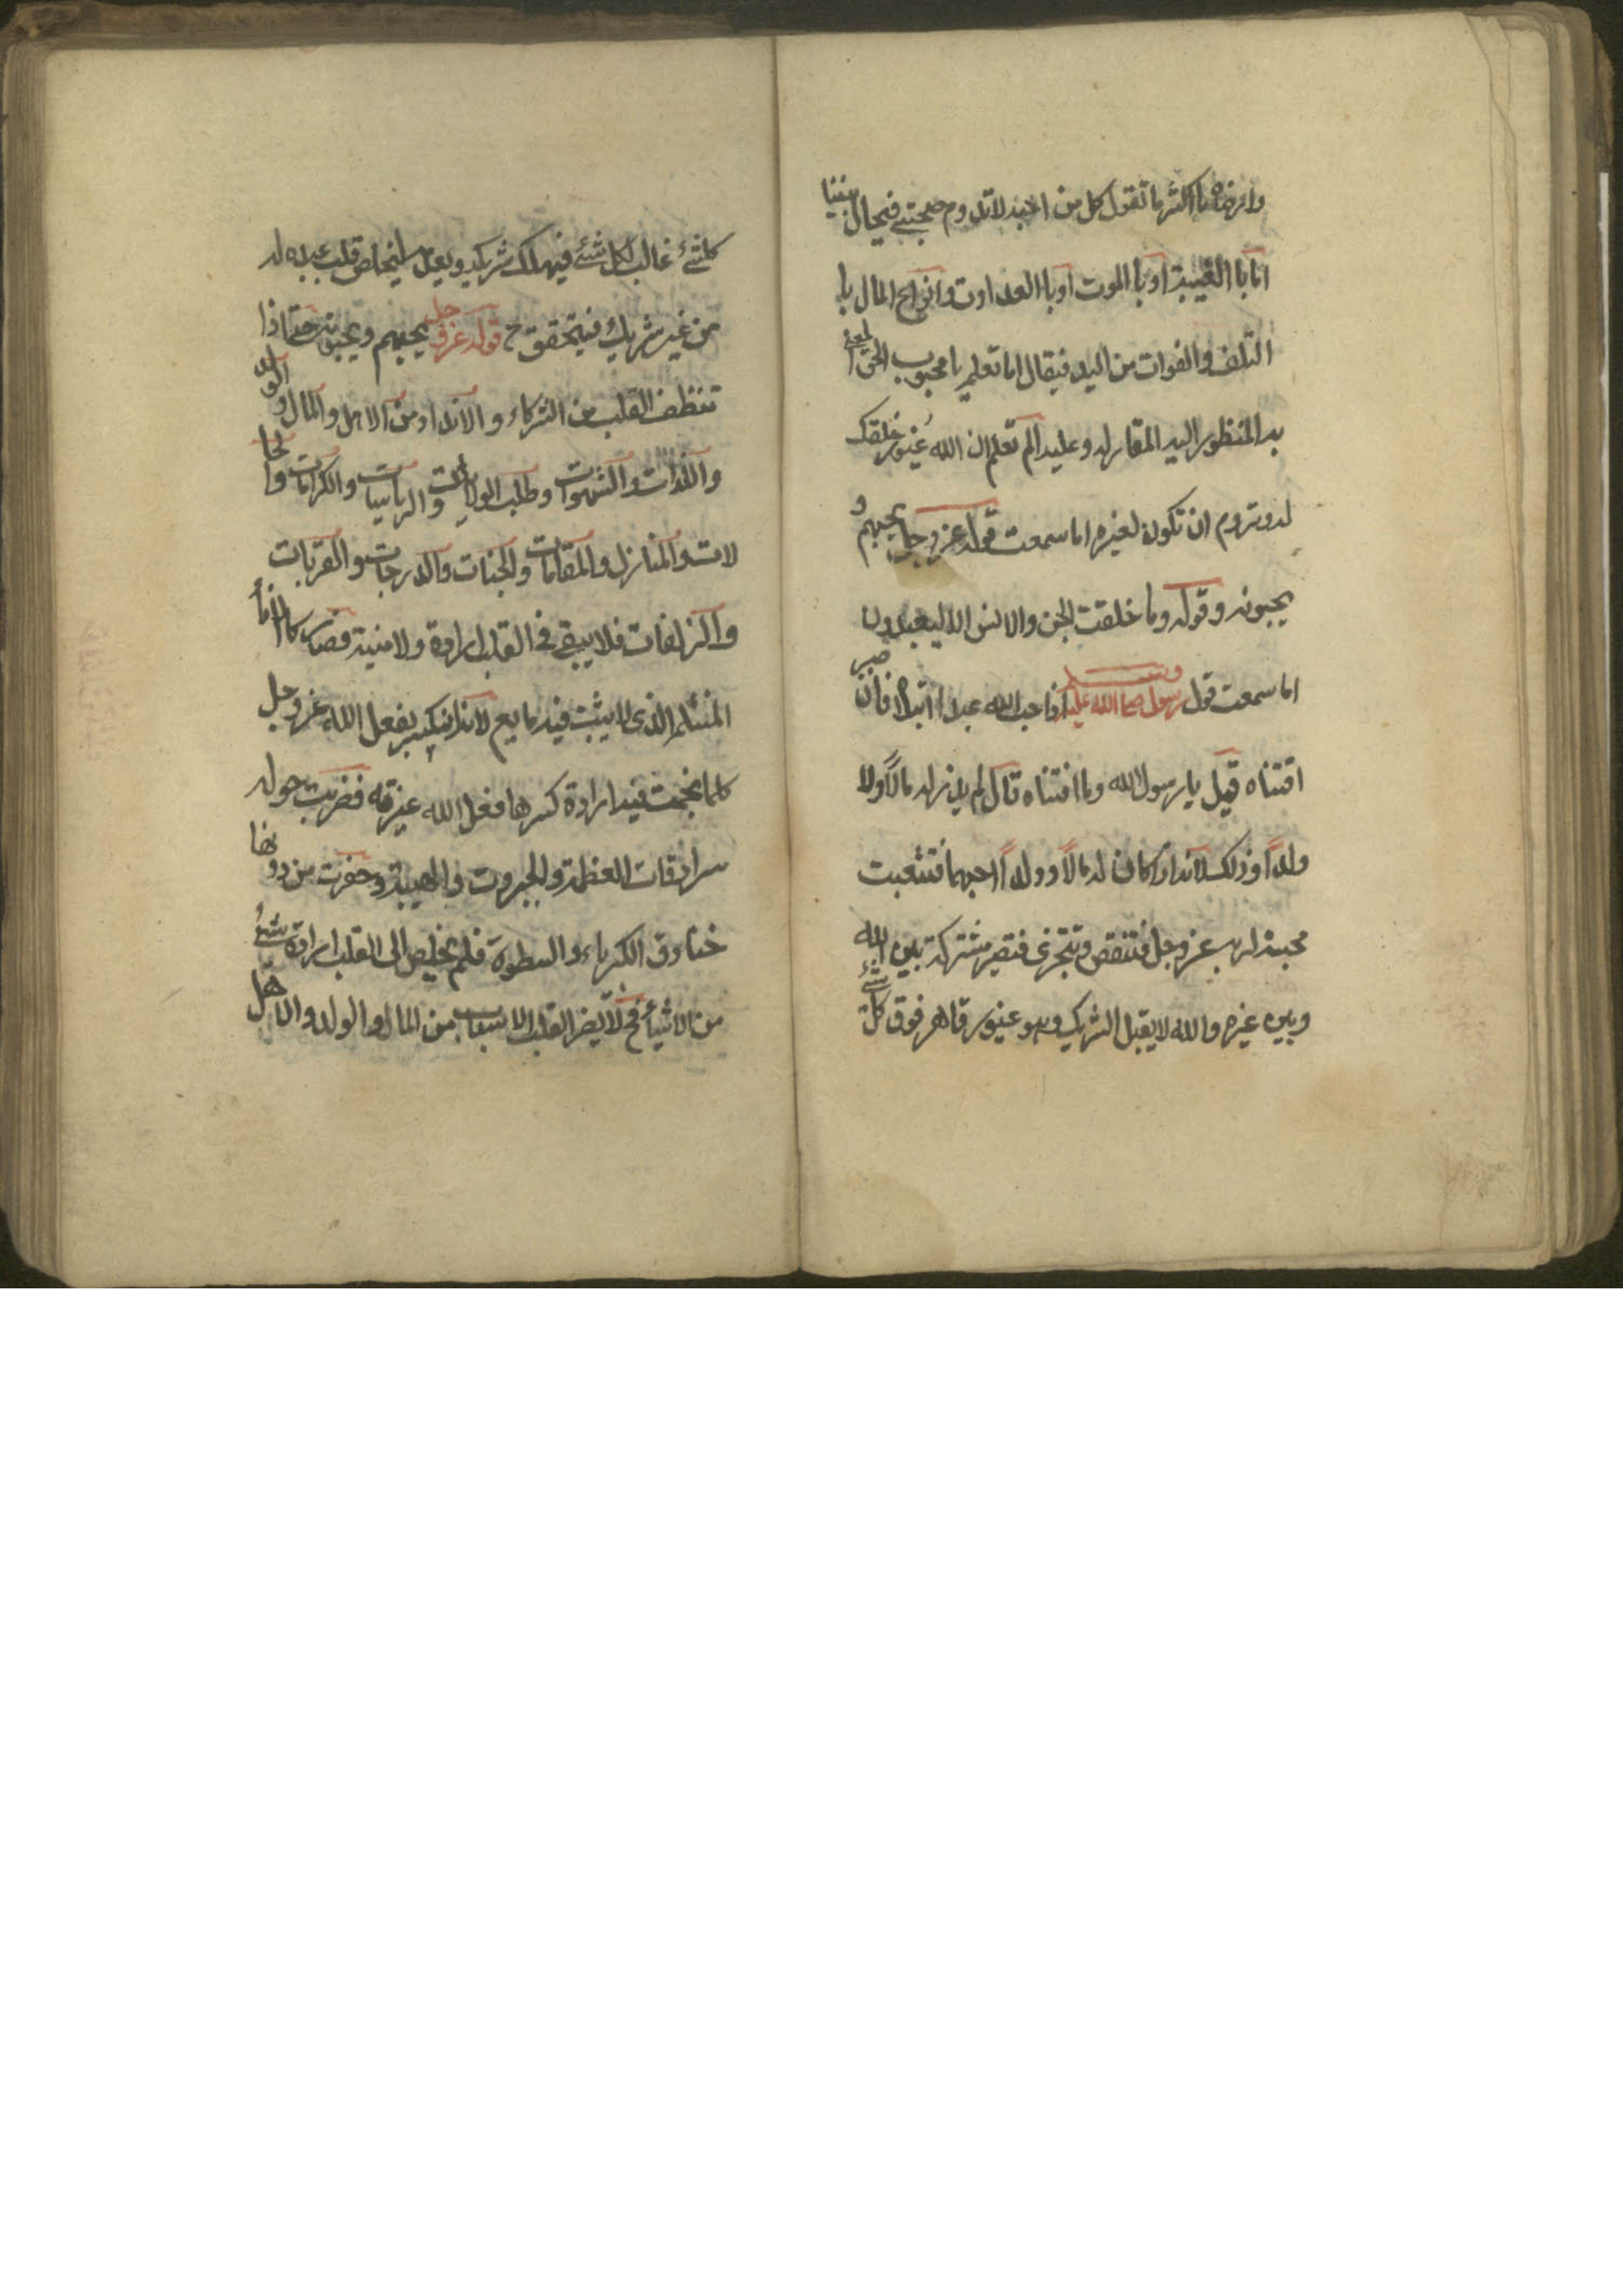 وارضاه ما اكثر ما تقول كل من احبه لا تدوم صحبتي فيحال بيننا
اما با الغيبة او با الموت او با العداوة وانواع المال با
التلف والفوات من اليد فيقال اما تعلم يا محبوب الحق المعنى
به المنظور اليه المغار له وعليه الم تعلم ان الله غيور خلقك
له وتروم ان تكون لغيره اما سمعت قوله عز وجل يحبهم و
يحبونه وقوله وما خلقت الجن والانس الا ليعبدون
اما سمعت قول رسول صلى الله عليه وسلم اذا احب الله عبدا ابتلاه فان صبر
اقتناه قيل يا رسول الله وما اقتناه قال لم يذر له مالاً ولا
ولداً وذلك لانه اذا كان له مالاً وولداً احبهما فتشعبت
محبته لربه عز وجل فتنقص وتتجزى فتصير مشتركة بين الله
وبين غيره والله لا يقبل الشريك وهو غيور قاهر فوق كل شئ
كلشئ غالب لكل شئ فيهلك شريكه ويعدمه ليخلص قلب عبده له
من غير شريك فيتحقق ح قوله عز وجل يحبهم ويحبونه حتى اذا
تنظف القلب من الشركاء والانداد من الاهل والمال والولد
واللذات والشهوات وطلب الولايات والرياسات والكرامات والحا
لات والمنازل والمقامات والجنات والدرجات والقربات
والزلفات فلا يبقى في القلب ارادة ولا منية فصار كالاناء
المنثلم الذى لا يثبت فيه مايع لانه انكسر بفعل الله عز وجل
كلما نجمت فيه ارادة كسرها فعل الله غيرته فضربت حوله
سرادقات العظمة والجبروت والهيبة وحفرت من دونها
خنادق الكبرياء والسطوة فلم يخلص الى القلب ارادة شئ
من الاشياء فح لا يضر القلب الاسباب من المال والولد والاهل